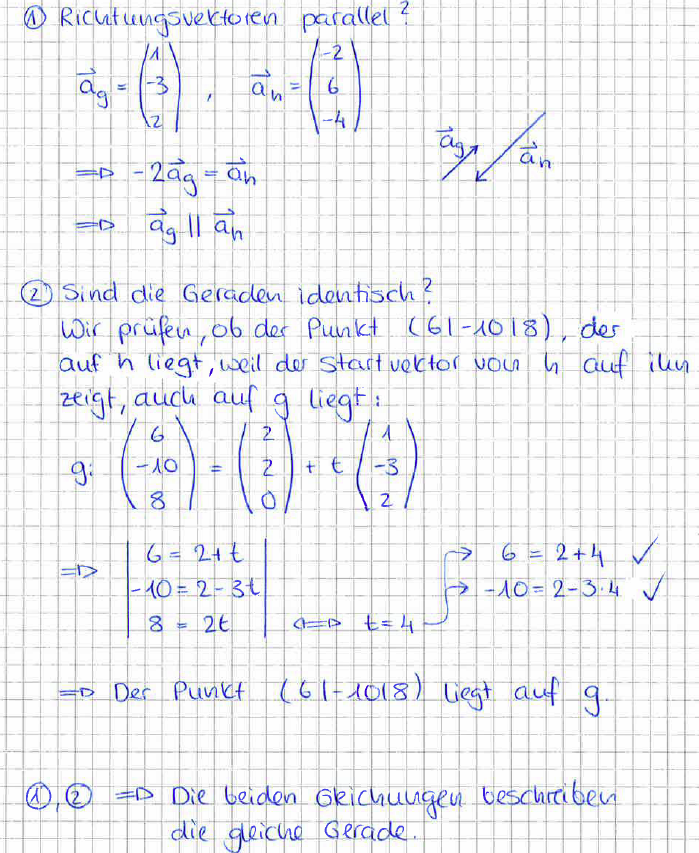 ① Richtungsvektoren parallel?
a⃗g = (1 -3 2), a⃗h = (-2 6 -4)
a⃗g a⃗h
⇒ -2a⃗g = a⃗h
⇒ a⃗g || a⃗h
② Sind die Geraden identisch?
Wir prüfen, ob der Punkt (6|-10|8), der
auf h liegt, weil der Startvektor von h auf ihn
zeigt, auch auf g liegt:
g: (6 -10 8) = (2 2 0) + t (1 -3 2)
⇒ | 6 = 2+t | → 6 = 2+4 ✓
| -10 = 2-3t | → -10 = 2-3·4 ✓
| 8 = 2t | ⇔ t = 4
⇒ Der Punkt (6|-10|8) liegt auf g.
①,② ⇒ Die beiden Gleichungen beschreiben
die gleiche Gerade.